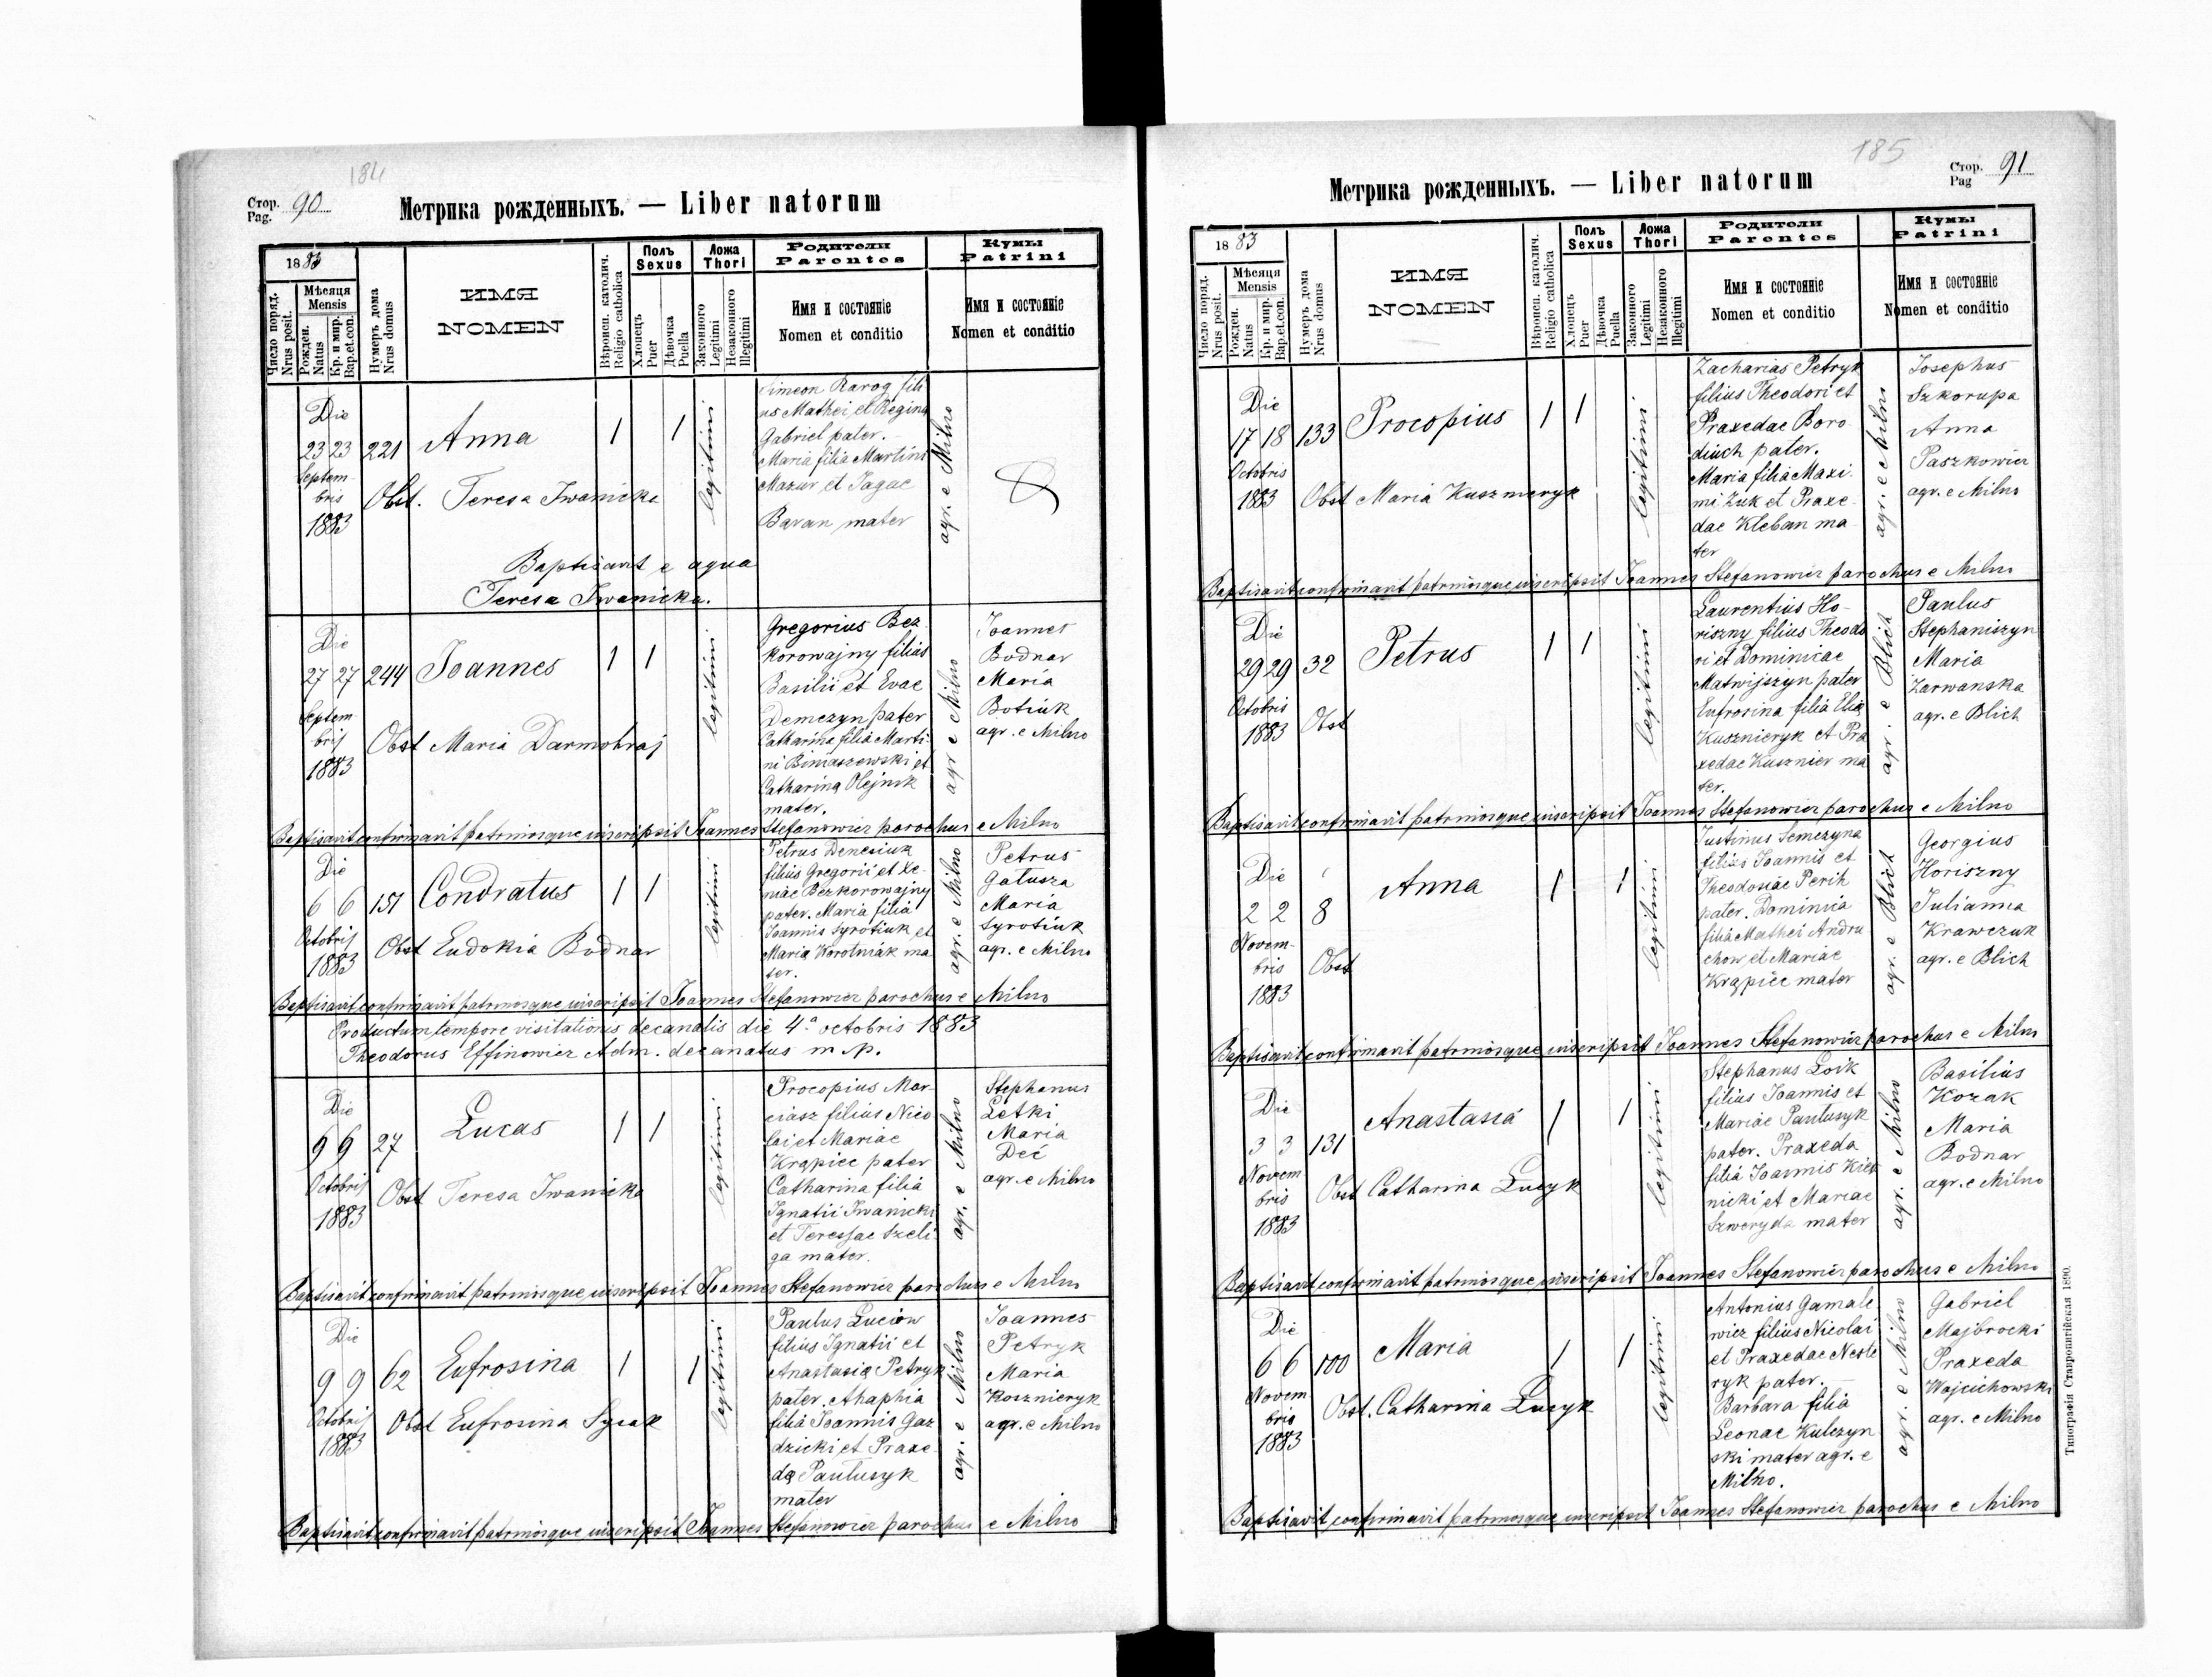 184
Стор. Pag. 90
Метрика рожденныхъ. — Liber natorum
1883
Число поряд. Nrus posit.
Мѣсяця Mensis
Рожден. Natus
Кр. и мир. Bap.et.con.
Нумеръ дома Nrus domus
ИМЯ
NOMEN
Вѣроисп. католич. Religio catholica
Полъ Sexus
Хлопець Puer
Дѣвочка Puella
Ложа Thori
Законного Legitimi
Незаконного Illegitimi
Родители Parentes
Имя и состояніе
Nomen et conditio
Кумы Patrini
Имя и состояніе
Nomen et conditio
Die
23 23 221 Anna 1 1
Septem-
bris
1883
Obst. Teresa Iwanicka
legitimi
Simeon Rarog fili
us Mathei et Regina
Gabriel pater.
Maria filia Martini
Mazur et Jagae
Baran mater
agr. e Milno
Baptisavit e aqua
Teresa Iwanicka.
Die
27 27 244 Joannes 1 1
Septem
bris
1883
Obst Maria Darmohraj
legitimi
Gregorius Bez
korowajny filias
Basilii et Evae
Demczyn pater
Catharina filia Marti-
ni Bimaszewski et
Catharina Olejnik
mater.
agr e Milno
Joannes
Bodnar
Maria
Botiuk
agr. e Milno
Baptisavit confirmavit patrinosque inscripsit Joannes Stefanowicz parochus e Milno
Die
6 6 151 Condratus 1 1
Octobris
1883
Obst Eudokia Bodnar
legitimi
Petrus Denesiuk
filius Gregorii et Xe-
niae Bezkorowajny
pater. Maria filia
Joannis Syrotiuk et
Maria Korotniak ma
ter.
agr. e Milno
Petrus
Gatusza
Maria
Syrotiuk
agr. e Milno
Baptisavit confirmavit patrinosque inscripsit Joannes Stefanowicz parochus e Milno
Productum tempore visitationis decanalis die 4a octobris 1883
Theodorus Effinowicz Adm. decanatus m. p.
Die
9 9 27 Lucas 1 1
Octobris
1883
Obst Teresa Iwanicka
legitimi
Procopius Mar
ciasz filius Nico
lai et Mariae
Krąpiec pater
Catharina filia
Ignatii Iwanicki
et Teressae Szeli
ga mater.
agr. e Milno
Stephanus
Letki
Maria
Deć
agr. e Milno
Baptisavit confirmavit patrinosque inscripsit Joannes Stefanowicz parochus e Milno
Die
9 9 62 Eufrosina 1 1
Octobris
1883
Obst Eufrosina Sycak
legitimi
Paulus Luciow
filius Ignatii et
Anastasia Petryk
pater. Ahaphia
filia Joannis Gaz
dzicki et Praxe
da Pautusyk
mater
agr. e Milno
Joannes
Petryk
Maria
Kosznieryk
agr. e Milno
Baptisavit confirmavit patrinosque inscripsit Joannes Stefanowicz parochus e Milno
185
Стор. Pag 91
Метрика рожденныхъ. — Liber natorum
1883
Число поряд. Nrus posit.
Мѣсяця Mensis
Рожден. Natus
Кр. и мир. Bap.et.con.
Нумеръ дома Nrus domus
ИМЯ
NOMEN
Вѣроисп. католич. Religio catholica
Полъ Sexus
Хлопецъ Puer
Дѣвочка Puella
Ложа Thori
Законного Legitimi
Незаконного Illegitimi
Родители Parentes
Имя и состояніе
Nomen et conditio
Кумы Patrini
Имя и состояніе
Nomen et conditio
Die
17 18 133 Procopius 1 1
Octobris
1883
Obst Maria Kuszmeryk
legitimi
Zacharias Petryk
filius Theodori et
Praxedae Boro
diuch pater.
Maria filia Maxi-
mi Zuk et Praxe-
dae Kleban ma
ter
agr. e Milno
Josephus
Szkorupa
Anna
Paszkowicz
agr. e Milno
Baptisavit confirmavit patrinosque inscripsit Joannes Stefanowicz parochus e Milno
Die
29 29 32 Petrus 1 1
Octobris
1883
Obst
legitimi
Laurentius Ho-
riszny filius Theodo
ri et Dominicae
Matwijszyn pater
Eufrosina filia Elia
Kusznieryk et Pra
xedae Kusznier ma
ter.
agr. e Blich
Paulus
Stephaniszyn
Maria
Zarwanska
agr. e Blich
Baptisavit confirmavit patrinosque inscripsit Joannes Stefanowicz parochus e Milno
Die
2 2 8 Anna 1 1
Novem-
bris
1883
Obst
legitimi
Justinus Semczyna
filius Joannis et
Theodosiae Perih
pater. Dominia
filia Mathei Andru
chow et Mariae
Krąpiec mater
agr. e Blich
Georgius
Horiszny
Julianna
Krawczuk
agr. e Blich
Baptisavit confirmavit patrinosque inscripsit Joannes Stefanowicz parochus e Milno
Die
3 3 131 Anastasia 1 1
Novem
bris
1883
Obst Catharina Lucyk
legitimi
Stephanus Loik
filius Joannis et
Mariae Pautusyk
pater. Praxeda
filia Joannis Kier
nicki et Mariae
Szweryda mater
agr. e Milno
Basilius
Kozak
Maria
Bodnar
agr. e Milno
Baptisavit confirmavit patrinosque inscripsit Joannes Stefanowicz parochus e Milno
Die
6 6 100 Maria 1 1
Novem
bris
1883
Obst. Catharina Lucyk
legitimi
Antonius Gamale
wicz filius Nicolai
et Praxedae Neste
ryk pater.
Barbara filia
Leonae Kulczyn
ski mater agr. e
Milno.
agr. e Milno
Gabriel
Majbrocki
Praxeda
Wojcichowski
agr. e Milno
Baptisavit confirmavit patrinosque inscripsit Joannes Stefanowicz parochus e Milno
Типографія Ставропигійская 1890.